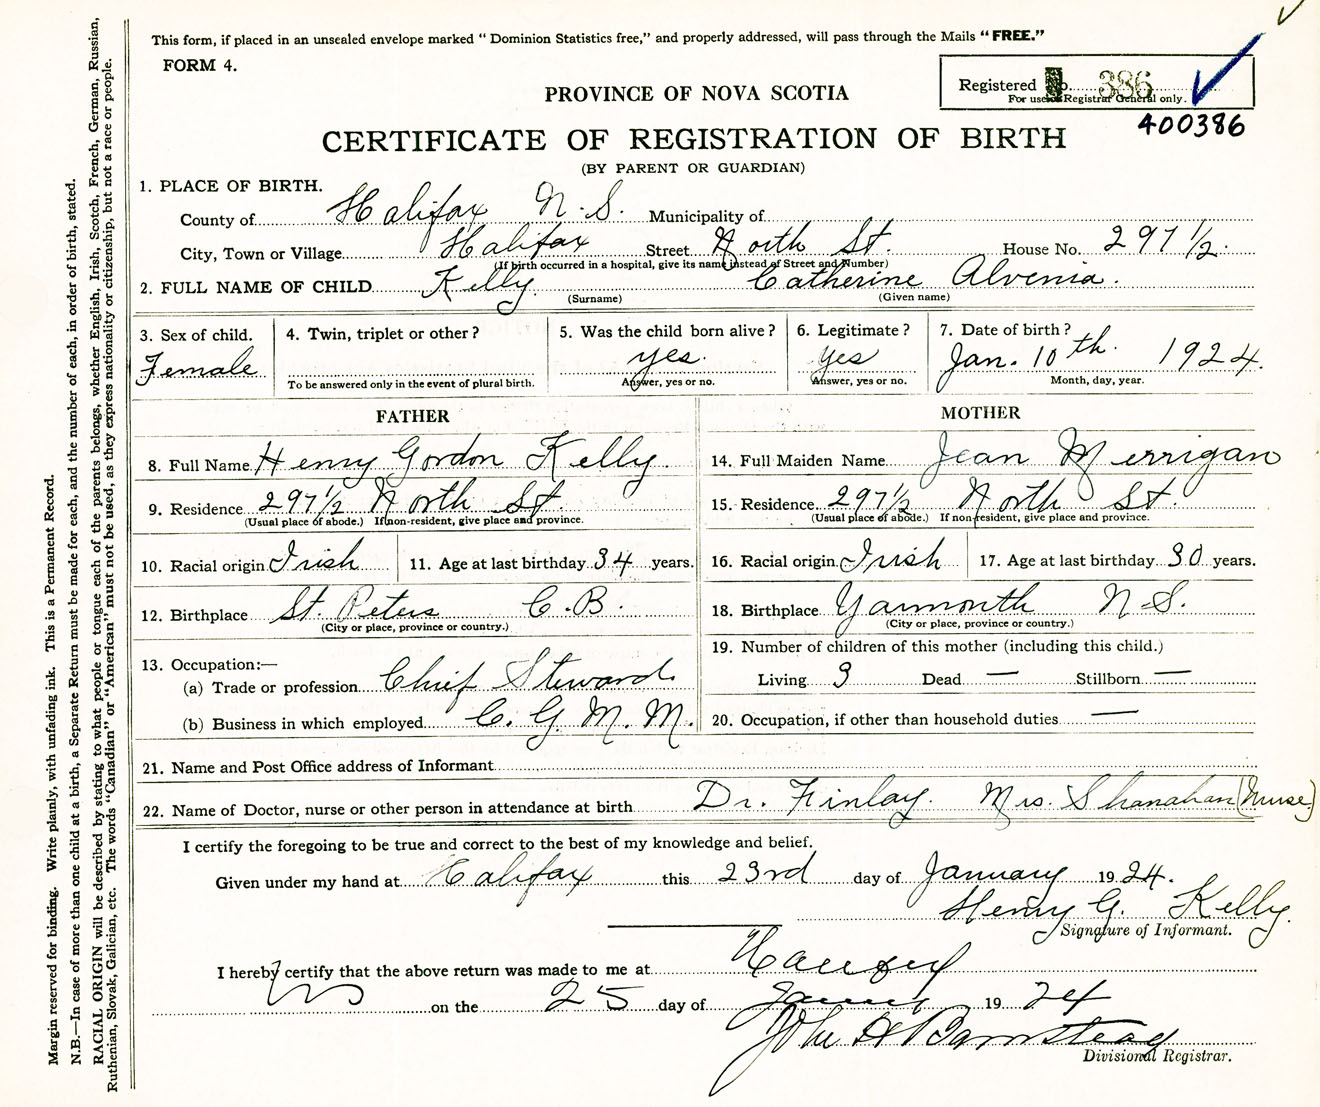 This form, if placed in an unsealed envelope marked “ Dominion Statistics free,” and properly addressed, will pass through the Mails “ FREE.”
FORM 4.
Registered No. 386
For use of Registrar General only.
400386
PROVINCE OF NOVA SCOTIA
CERTIFICATE OF REGISTRATION OF BIRTH
(BY PARENT OR GUARDIAN)
1. PLACE OF BIRTH.
County of Halifax N.S. Municipality of
City, Town or Village Halifax Street North St. House No. 297 1/2.
(If birth occurred in a hospital, give its name instead of Street and Number)
2. FULL NAME OF CHILD Kelly. Catherine Alvenia.
(Surname) (Given name)
3. Sex of child. 4. Twin, triplet or other ? 5. Was the child born alive ? 6. Legitimate ? 7. Date of birth ?
Female yes. yes Jan. 10th. 1924.
To be answered only in the event of plural birth. Answer, yes or no. Answer, yes or no. Month, day, year.
FATHER MOTHER
8. Full Name Henry Gordon Kelly. 14. Full Maiden Name Jean Merrigan
9. Residence 297 1/2 North St. 15. Residence 297 1/2 North St.
(Usual place of abode.) If non-resident, give place and province. (Usual place of abode.) If non-resident, give place and province.
10. Racial origin Irish 11. Age at last birthday 34 years. 16. Racial origin Irish 17. Age at last birthday 30 years.
12. Birthplace St. Peters C.B. 18. Birthplace Yarmouth N.S.
(City or place, province or country.) (City or place, province or country.)
13. Occupation:— 19. Number of children of this mother (including this child.)
(a) Trade or profession Chief Steward Living 3 Dead — Stillborn —
(b) Business in which employed C. G. M. M. 20. Occupation, if other than household duties —
21. Name and Post Office address of Informant
22. Name of Doctor, nurse or other person in attendance at birth Dr. Finlay. Mrs. Shanahan (Nurse)
I certify the foregoing to be true and correct to the best of my knowledge and belief.
Given under my hand at Halifax this 23rd day of January 1924.
Henry G. Kelly.
Signature of Informant.
I hereby certify that the above return was made to me at Halifax
NS on the 25 day of January 1924
John H Barnstead
Divisional Registrar.
Margin reserved for binding. Write planly, with unfading ink. This is a Permanent Record.
N.B.—In case of more than one child at a birth, a Separate Return must be made for each, and the number of each, in order of birth, stated.
RACIAL ORIGIN will be described by stating to what people or tongue each of the parents belongs, whether English, Irish, Scotch, French, German, Russian,
Ruthenian, Slovak, Galician, etc. The words “Canadian” or “American” must not be used, as they express nationality or citizenship, but not a race or people.